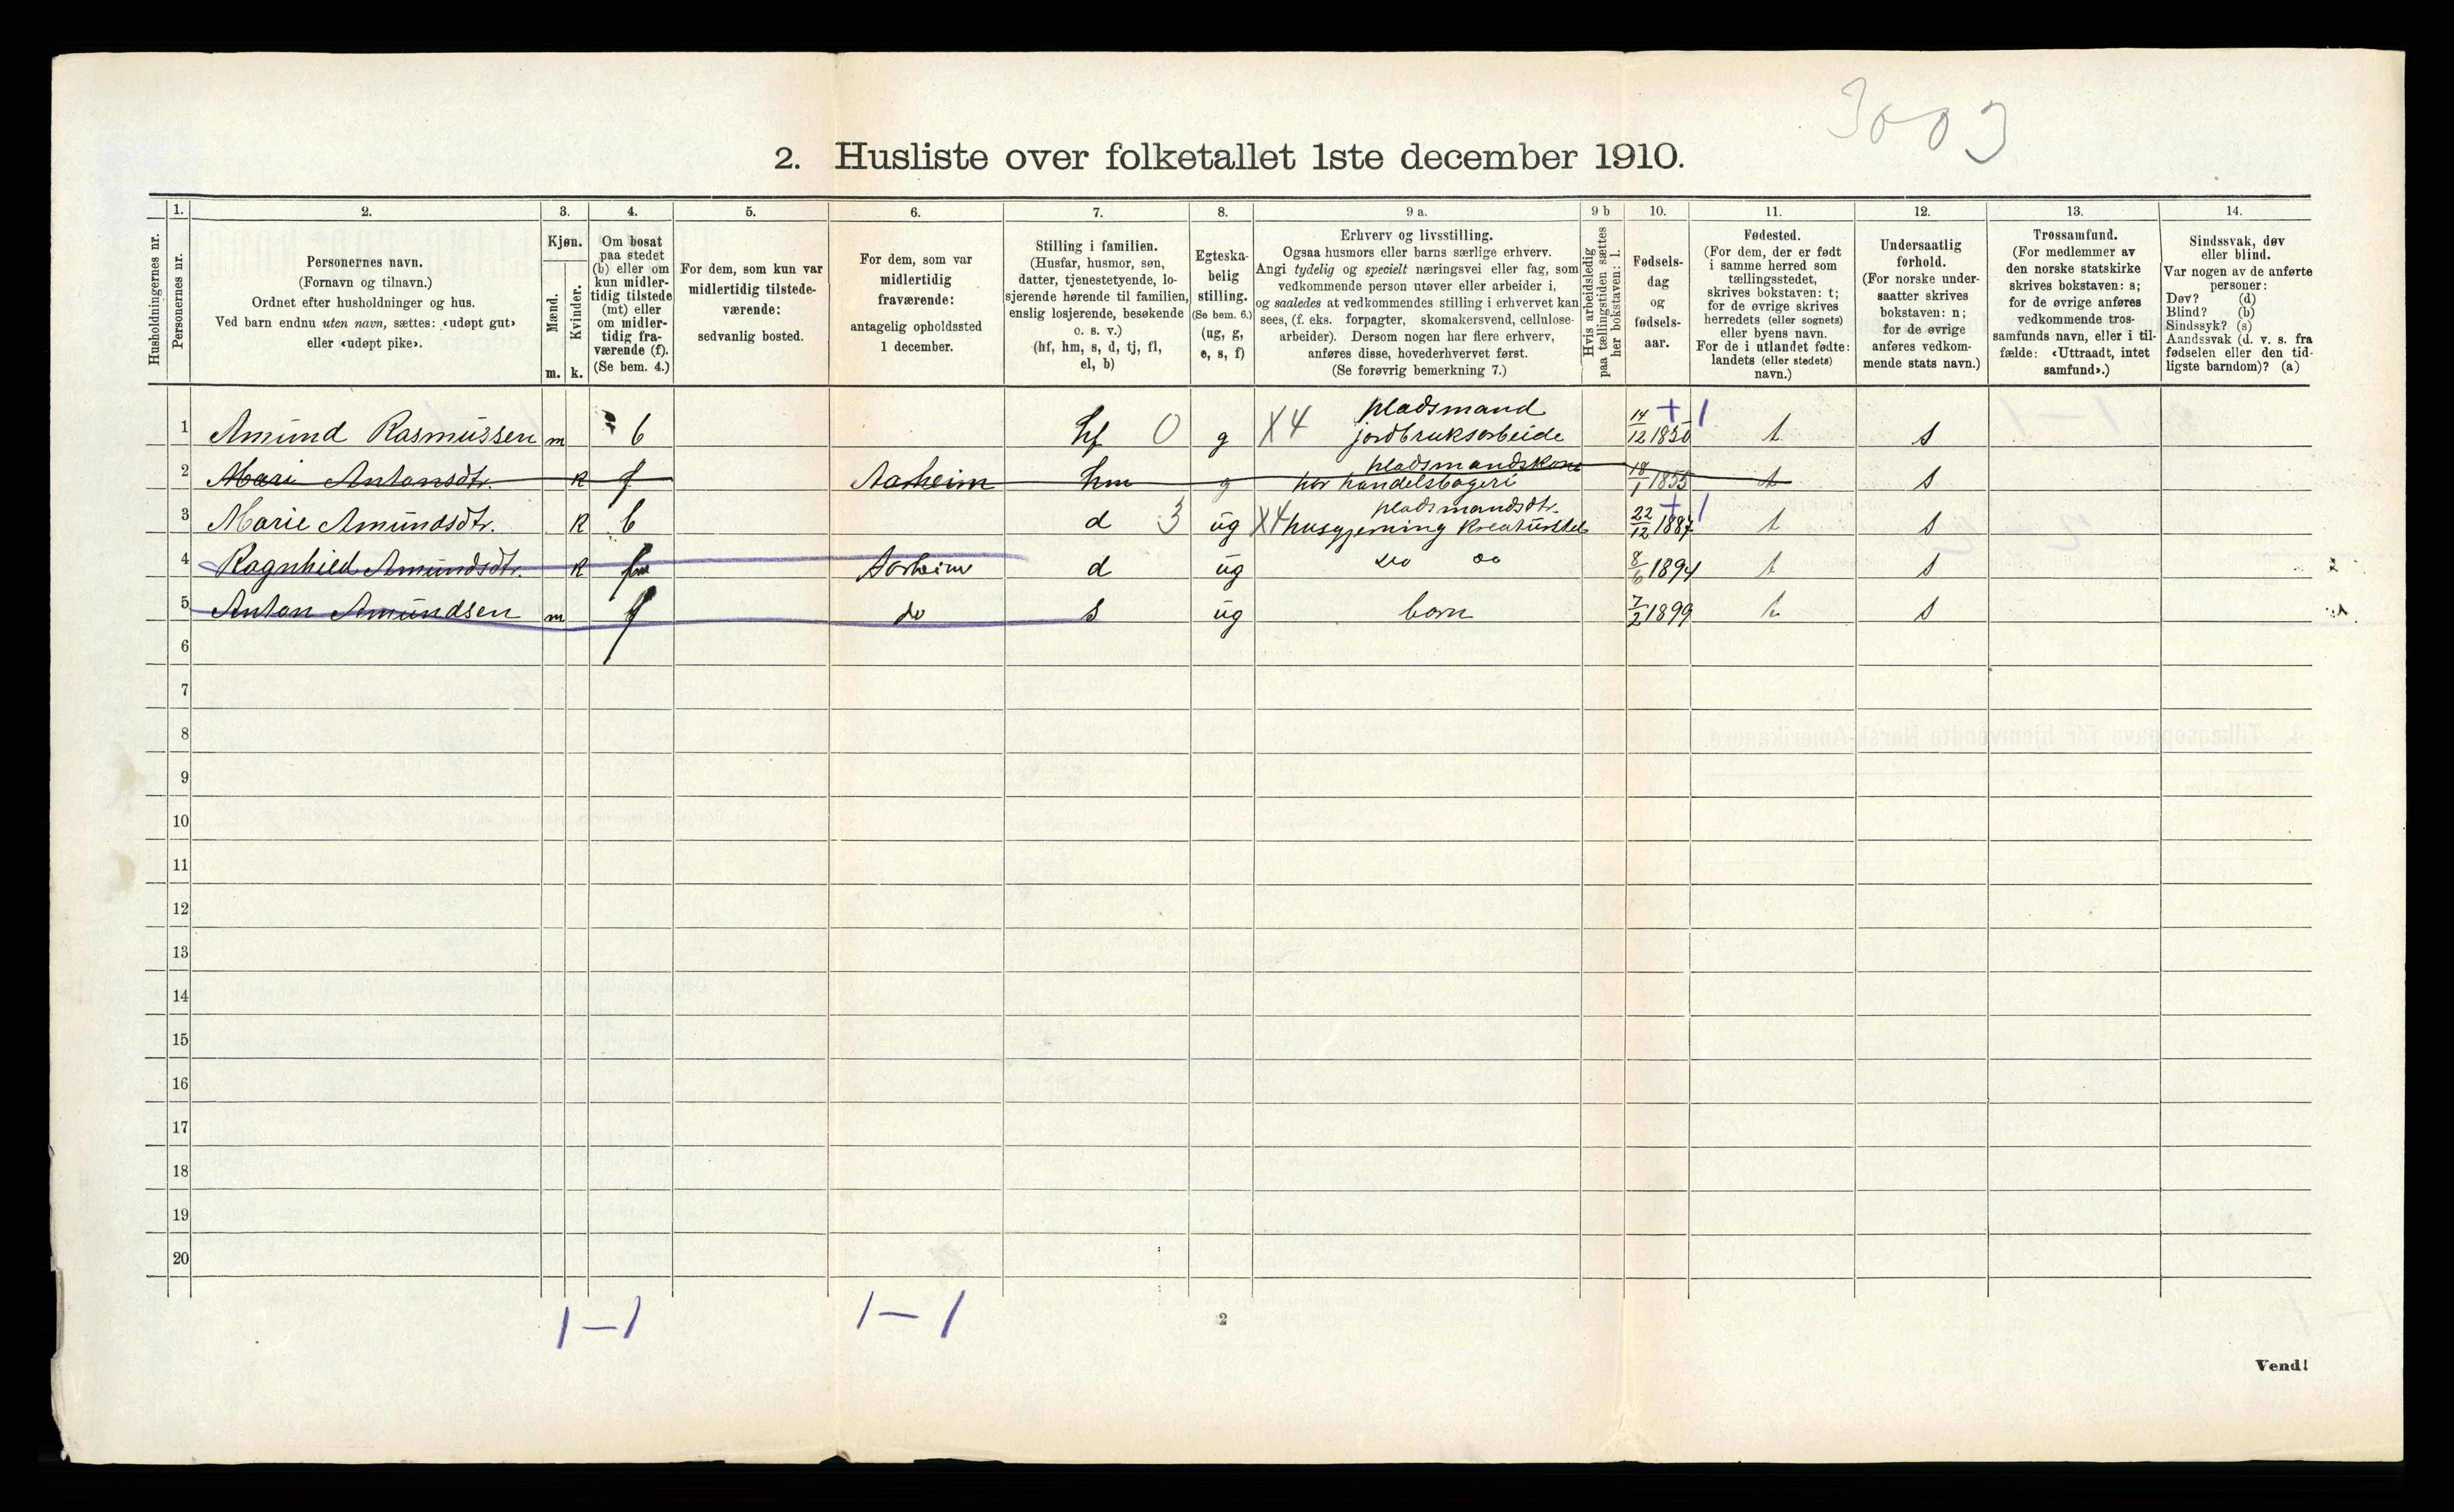 3003
2. Husliste over folketallet 1ste december 1910.
Husholdningernes nr.
1.
Personernes nr.
2.
Personernes navn.
(Fornavn og tilnavn.)
Ordnet efter husholdninger og hus.
Ved barn endnu uten navn, sættes: «udøpt gut»
eller «udøpt pike».
3.
Kjøn.
Mænd.
Kvinder.
m. k.
4.
Om bosat
paa stedet
(b) eller om
kun midler-
tidig tilstede
(mt) eller
om midler-
tidig fra-
værende (f).
(Se bem. 4.)
5.
For dem, som kun var
midlertidig tilstede-
værende:
sedvanlig bosted.
6.
For dem, som var
midlertidig
fraværende:
antagelig opholdssted
1 december.
7.
Stilling i familien.
(Husfar, husmor, søn,
datter, tjenestetyende, lo-
sjerende hørende til familien,
enslig losjerende, besøkende
o. s. v.)
(hf, hm, s, d, tj, fl,
el, b)
8.
Egteska-
belig
stilling.
(Se bem. 6.)
(ug, g,
e, s, f)
9 a.
Erhverv og livsstilling.
Ogsaa husmors eller barns særlige erhverv.
Angi tydelig og specielt næringsvei eller fag, som
vedkommende person utøver eller arbeider i,
og saaledes at vedkommendes stilling i erhvervet kan
sees, (f. eks. forpagter, skomakersvend, cellulose-
arbeider). Dersom nogen har flere erhverv,
anføres disse, hovederhvervet først.
(Se forøvrig bemerkning 7.)
9 b
Hvis arbeidsledig
paa tællingstiden sættes
her bokstaven: l.
10.
Fødsels-
dag
og
fødsels-
aar.
11.
Fødested.
(For dem, der er født
i samme herred som
tællingsstedet,
skrives bokstaven: t;
for de øvrige skrives
herredets (eller sognets)
eller byens navn.
For de i utlandet fødte:
landets (eller stedets)
navn.)
12.
Undersaatlig
forhold.
(For norske under-
saatter skrives
bokstaven: n;
for de øvrige
anføres vedkom-
mende stats navn.)
13.
Trossamfund.
(For medlemmer av
den norske statskirke
skrives bokstaven: s;
for de øvrige anføres
vedkommende tros-
samfunds navn, eller i til-
fælde: «Uttraadt, intet
samfund».)
14.
Sindssvak, døv
eller blind.
Var nogen av de anførte
personer:
Døv? (d)
Blind? (b)
Sindssyk? (s)
Aandssvak (d. v. s. fra
fødselen eller den tid-
ligste barndom)? (a)
1 Amund Rasmussen m b hf 0 g X4 pladsmand jordbruksarbeide 14/12 1850 + 1 t s
2 Mari Antonsdtr. k f Aarheim hm g pladsmandskone har handelsbageri 18/1 1855 t s
3 Marie Amundsdtr. k b d 3 ug X4 pladsmandsdtr. husgjerning kreaturstel 22/12 1887 + 1 t s
4 Ragnhild Amundsdtr. k Aarheim d ug do do 8/6 1894 t s
5 Anton Amundsen m f do s ug barn 7/2 1899 t s
6
7
8
9
10
11
12
13
14
15
16
17
18
19
20
1 – 1
1 – 1
2
Vend!